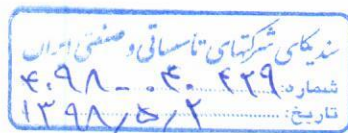 سندیکای شرکتهای تاسیساتی و صنعتی ایران
شماره: ۴۰۹۸۰۰۰۴۰۴۳۹
تاریخ: ۱۳۹۸/۵/۲